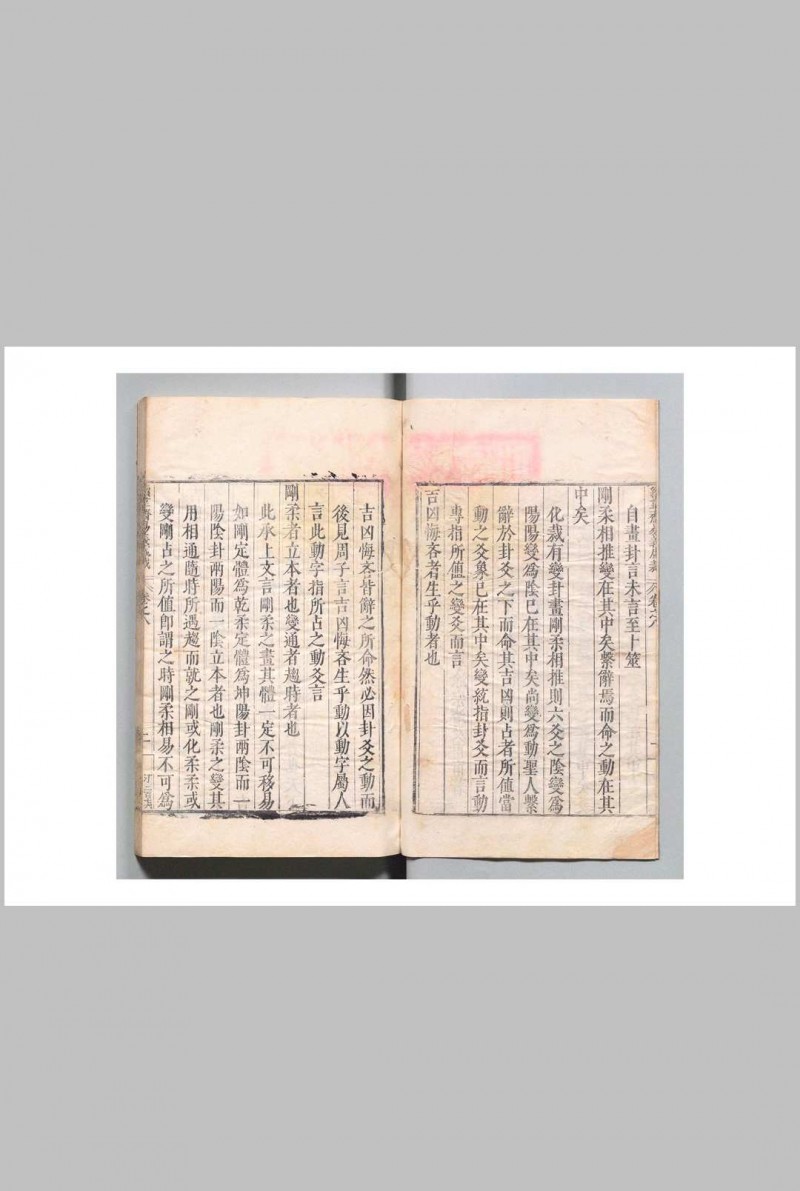 自畫卦言未言至卜筮
剛柔相推變在其中矣繫辭焉而命之動在其
中矣
化裁有變卦畫剛柔相推則六爻之陰變為
陽陽變為陰已在其中矣尚變為動聖人繫
辭於卦爻之下而命其吉凶則占者所值當
動之爻象已在其中矣變統指卦爻而言動
專指所值之變爻而言
吉凶悔吝者生乎動者也
吉凶悔吝皆辭之所命然必因卦爻之動而
後見周子言吉凶悔吝生乎動以動字屬人
言此動字指所占之動爻言
剛柔者立本者也變通者趨時者也
此承上文言剛柔之畫其體一定不可移易
如剛定體為乾柔定體為坤陽卦兩陰而一
陽陰卦兩陽而一陰立本者也剛柔之變其
用相通隨時所遇趨而就之剛或化柔柔或
變剛占之所值即謂之時剛柔相易不可為